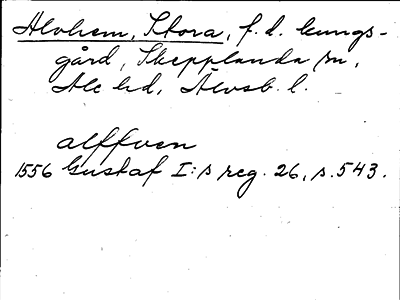 Alvhem, Stora, f.d. kungs-
gård, Skepplanda sn,
Ale hd, Älvsb. l.
alffven
1556 Gustaf I:s reg. 26, s. 543.